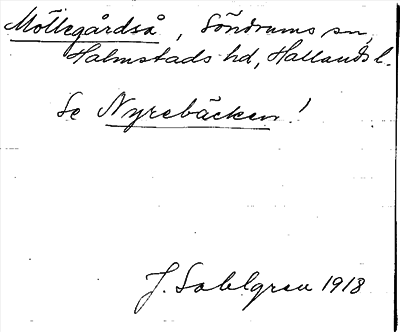 Möllegårdså, Söndrums sn,
Halmstads hd, Hallands l.
Se Nyrebäcken!
J. Sahlgren 1918